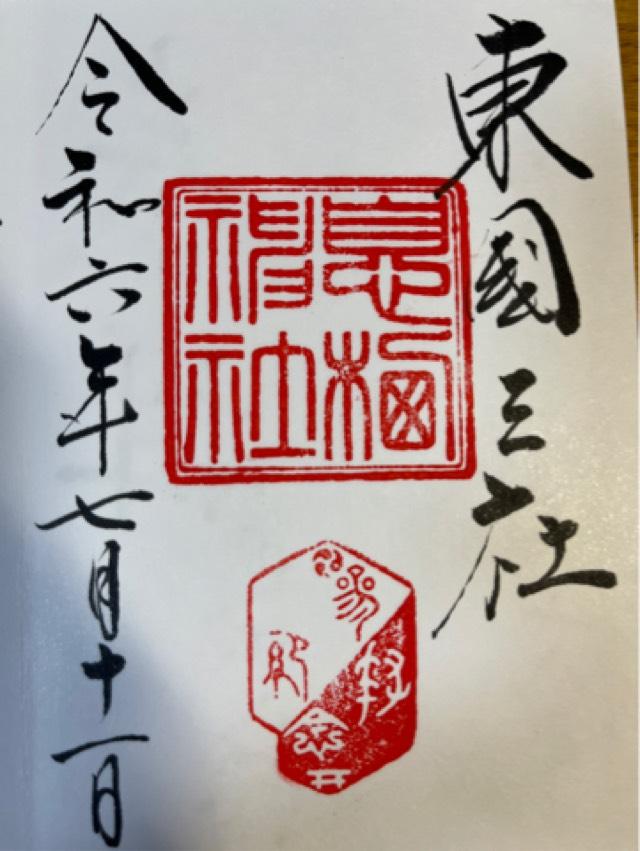 東國三社
息栖神社
令和六年七月十一日